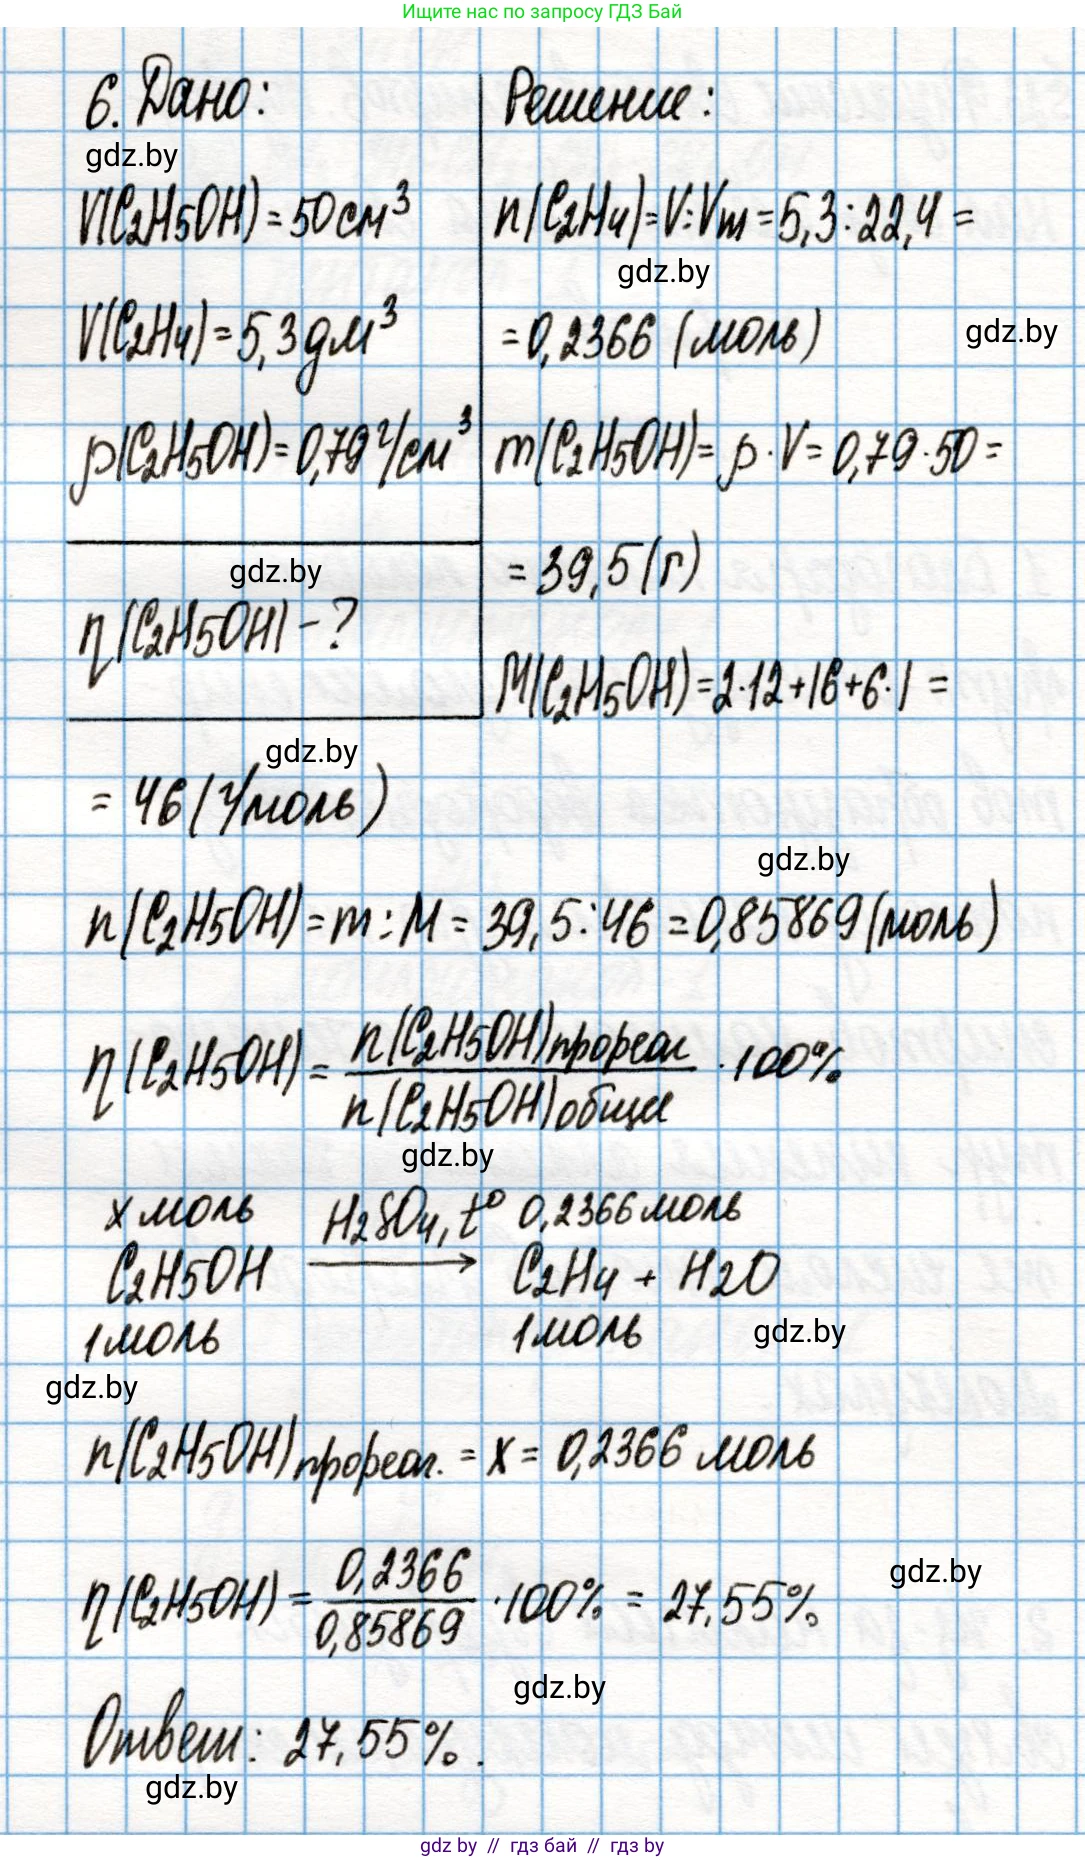 Ищите нас по запросу ГДЗ Бай
6. Дано:
gdz.by
V(C2H5OH) = 50 см³
V(C2H4) = 5,3 дм³
ρ(C2H5OH) = 0,79 г/см³
gdz.by
η(C2H5OH) - ?
Решение:
n(C2H4) = V : Vm = 5,3 : 22,4 =
gdz.by
= 0,2366 (моль)
gdz.by
m(C2H5OH) = ρ · V = 0,79 · 50 =
= 39,5 (г)
M(C2H5OH) = 2·12+16+6·1 =
gdz.by
= 46 (г/моль)
gdz.by
n(C2H5OH) = m : M = 39,5 : 46 = 0,85869 (моль)
η(C2H5OH) = n(C2H5OH)прореаг / n(C2H5OH)общее · 100%
gdz.by
x моль H2SO4, t° 0,2366 моль
C2H5OH → C2H4 + H2O
1 моль 1 моль
gdz.by
gdz.by
n(C2H5OH)прореаг. = x = 0,2366 моль
gdz.by
η(C2H5OH) = 0,2366 / 0,85869 · 100% = 27,55%
gdz.by
Ответ: 27,55%.
gdz.by
gdz by // гдз бай // гдз by